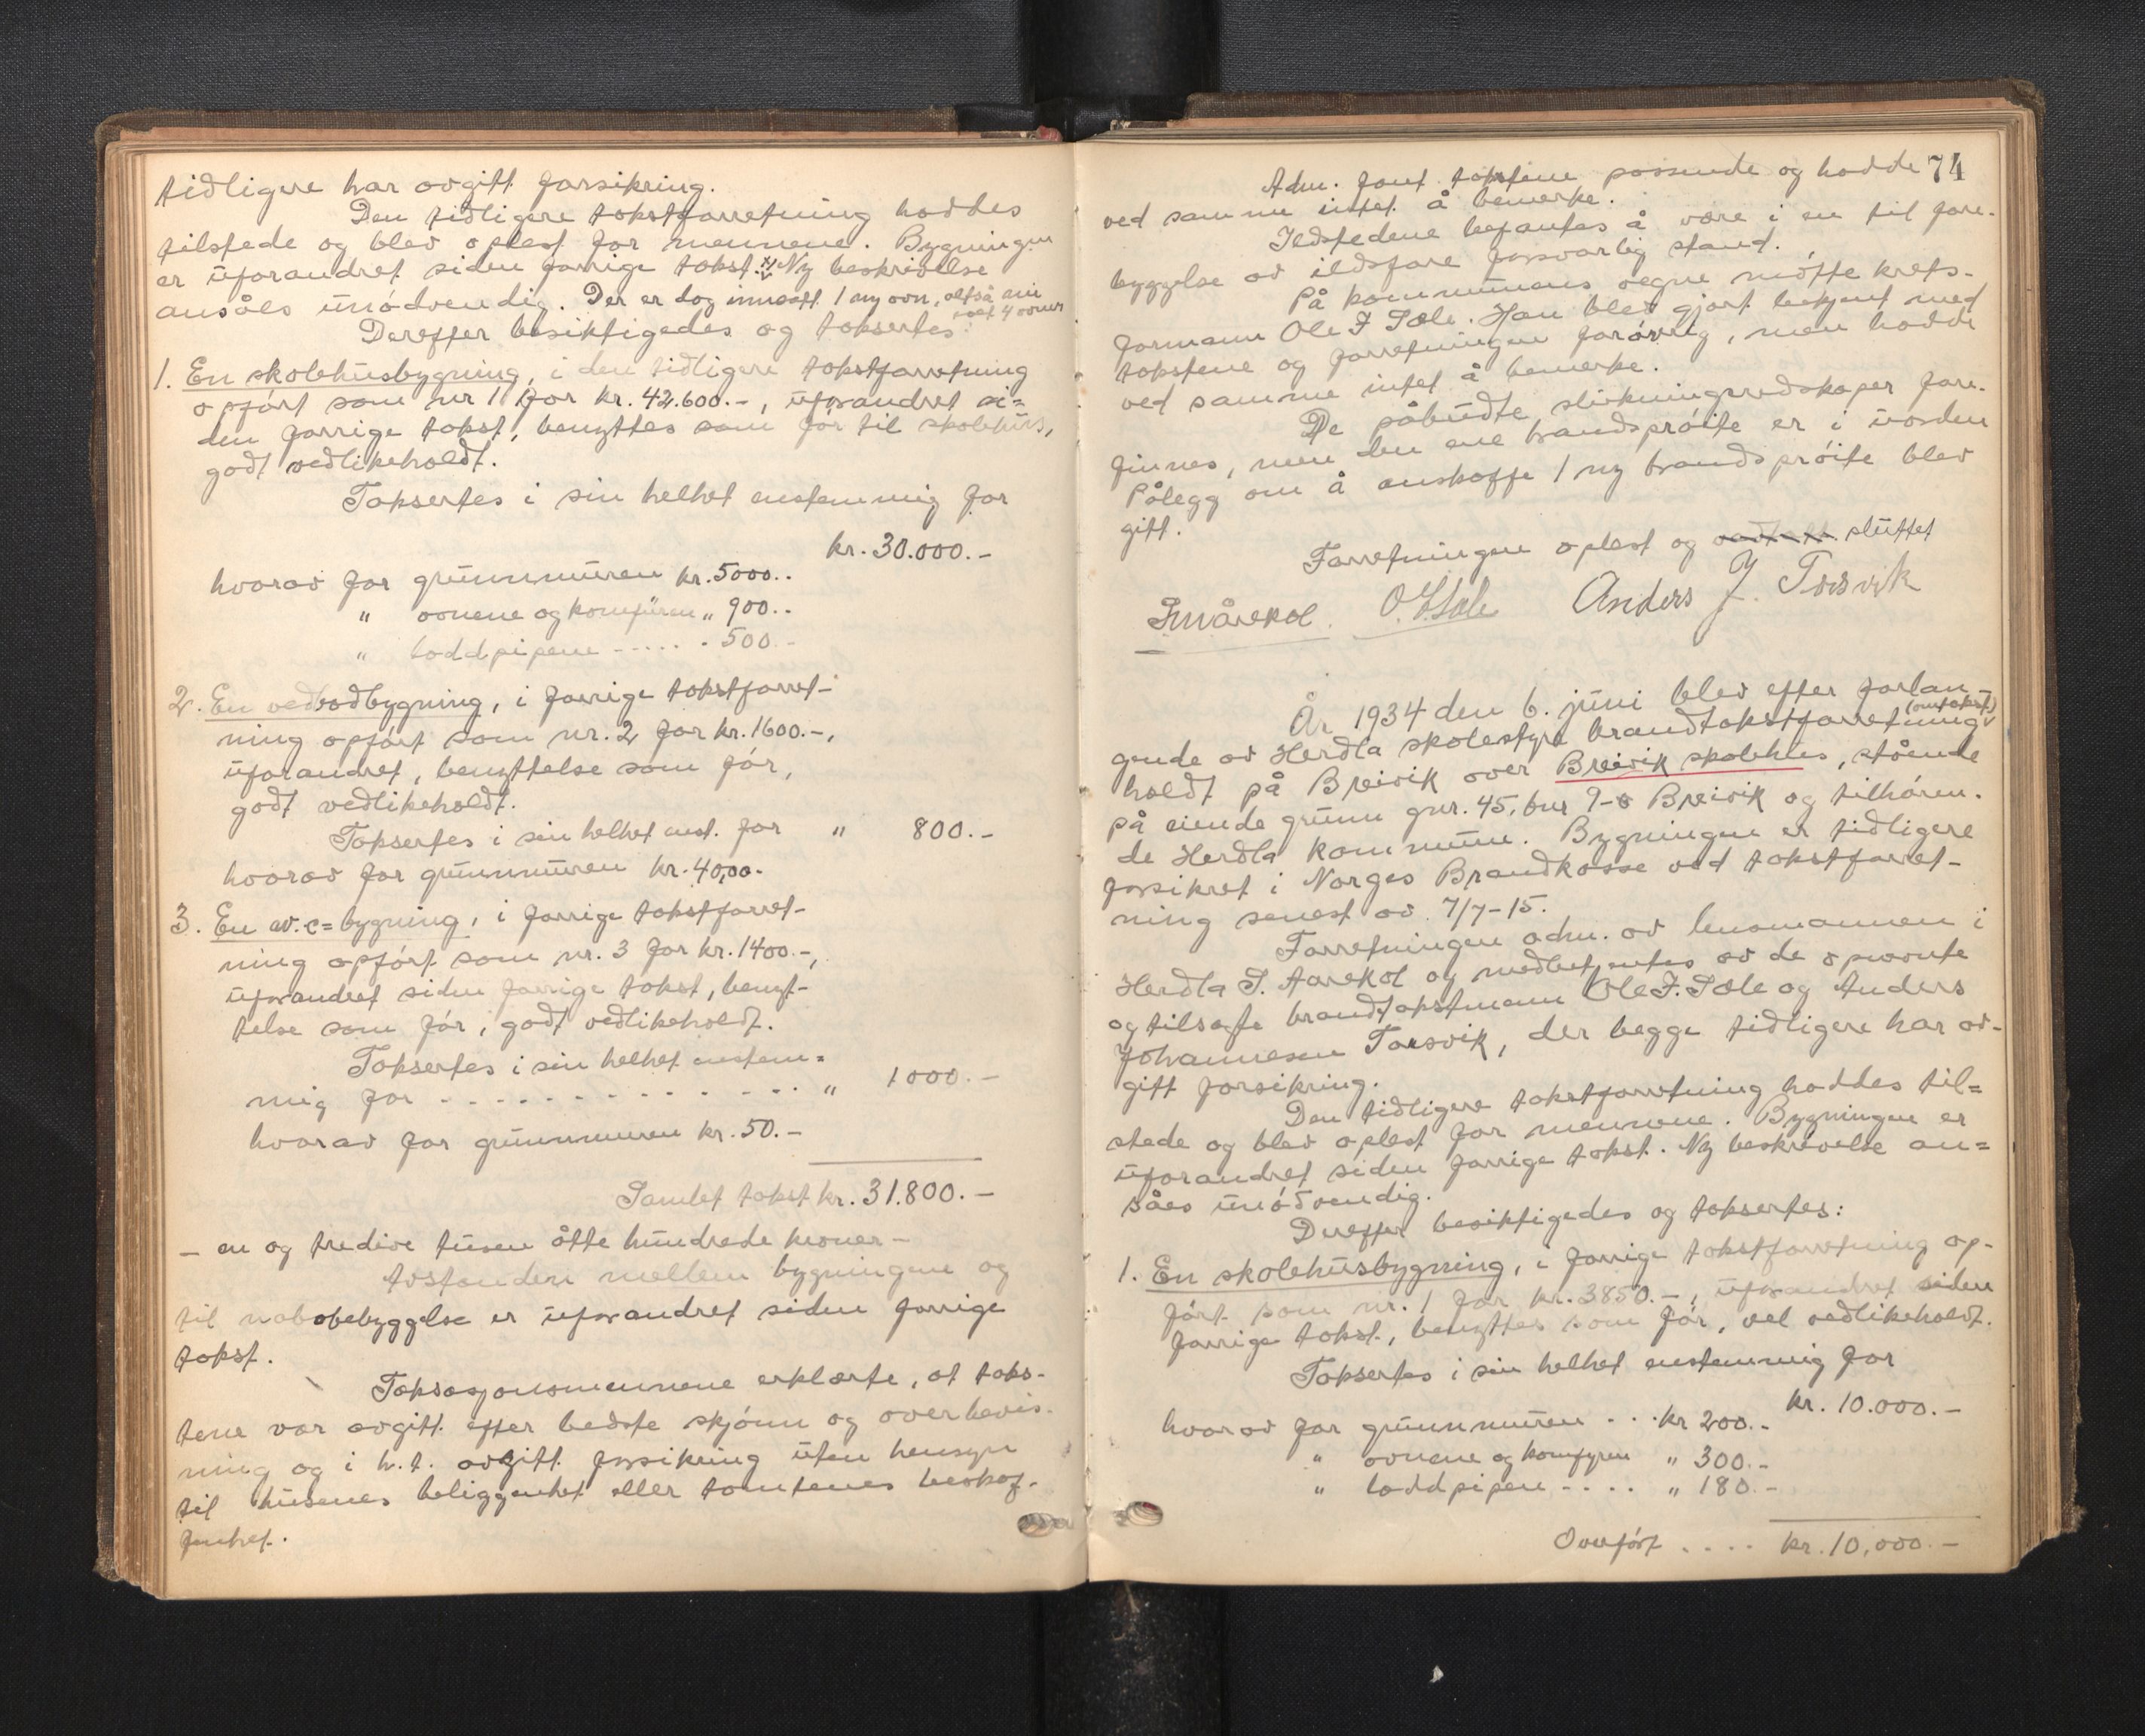 tidligere har avgitt forsikring.
Den tidligere takstforretning haddes
tilstede og blev oplest for mennene. Bygningen
er uforandret siden forrige takst. x) Ny beskrivelse
ansåes unødvendig. Der er dog innsatt 1 ny ovn, altså nu
i alt 4 ovner
Derefter besiktigedes og taksertes:
1. En skolehusbygning, i den tidligere takstforretning
opført som nr 1 for kr. 42.600.-, uforandret si=
den forrige takst, benyttes som før til skolehus,
godt vedlikeholdt.
Taksertes i sin helhet enstemmig for
kr. 30.000.-
hvorav for grunnmuren kr. 5000..
" ovnene og komfüren " 900..
" loddpipene ----- - 500.-
2. En vedbodbygning, i forrige takstforret-
ning opført som nr. 2 for kr. 1600.-,
uforandret, benyttelse som før,
godt vedlikeholdt.
Taksertes i sin helhet enst. for " 800.-
hvorav for grunnmuren kr. 40,00.-
3. En w.c= bygning, i forrige takstforret-
ning opført som nr. 3 for kr. 1400.-,
uforandret siden forrige takst, benyt-
telse som før, godt vedlikeholdt.
Taksertes i sin helhet enstem=
mig for - - - - - - - - - - - - " 1000.-
hvorav for grunnmuren kr. 50.-
Samlet takst kr. 31.800.-
- en og tredive tusen åtte hundrede kroner -
Avstanden mellem bygningene og
til nabobebyggelse er uforandret siden forrige
takst.
Taksasjonsmennene erklærte, at taks-
tene var avgitt efter bedste skjønn og overbevis-
ning og i h.t. avgitt forsikring uten hensyn
til husenes beliggenhet eller tomtenes beskaf-
fenhet.
74
Adm. fant takstene passende og hadde
ved samme intet å bemerke.
Ildstedene befantes å være i en til fore-
byggelse av ildsfare forsvarlig stand.
På kommunens vegne møtte krets-
formann Ole J Sæle. Han blev gjort bekjent med
takstene og forretningen forøvrig, men hadde
ved samme intet å bemerke.
De påbudte slukningsredskaper fore-
finnes, men den ene brandsprøite er i uorden
Pålegg om å anskaffe 1 ny brandsprøite blev
gitt.
Forretningen oplest og sluttet
O. J. Sæle Anders J. Torsvik
År 1934 den 6. juni blev efter forlan
gende av Herdla skolestyre brandtakstforretning (omtakst)
holdt på Breivik over Breivik skolehus, stående
på eiende grunn gnr. 45, bnr 9-o Breivik og tilhøren-
de Herdla kommune. Bygningen er tidligere
forsikret i Norges Brandkasse ved takstforret-
ning senest av 7/7-15.
Forretningen adm. av lensmannen i
Herdla S. Aarekol og medbetjentes av de opnevnte
og tilsagte brandtakstmenn Ole J. Sæle og Anders
Johannesen Torsvik, der begge tidligere har av-
gitt forsikring.
Den tidligere takstforretning haddes til=
stede og blev oplest for mennene. Bygningen er
uforandret siden forrige takst. Ny beskrivelse an=
såes unødvendig.
Derefter besiktigedes og taksertes:
1. En skolehusbygning, i forrige takstforretning op-
ført som nr. 1 for kr. 3850.-, uforandret siden
forrige takst, benyttes som før, vel vedlikeholdt.
Taksertes i sin helhet enstemmig for
kr. 10.000.-
hvorav for grunnmuren - - - kr 200.-
" ovnene og komfyren " 300.-
" loddpipen - - - - " 180.-
Overført .... kr. 10,000.-